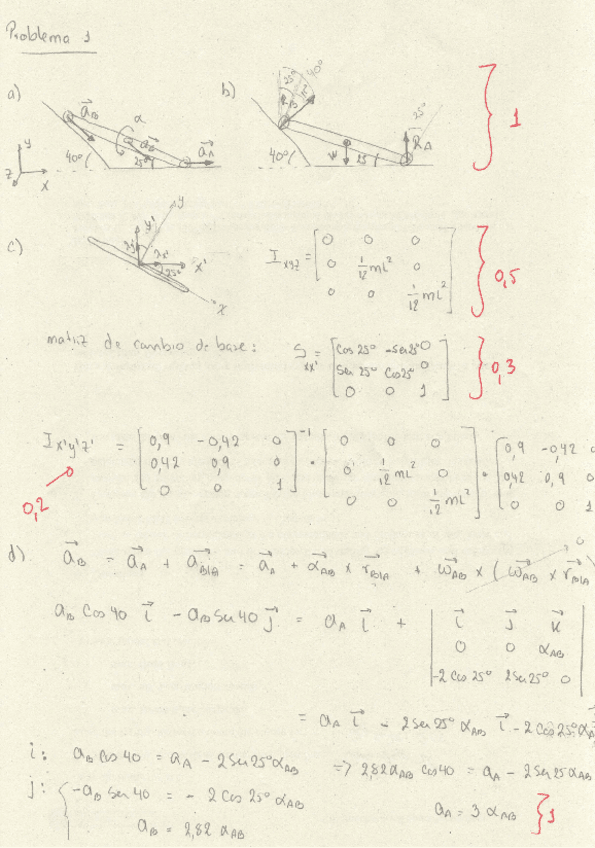 Problema 1
a) b)
a⃗_B α 25° 40°
40°( a⃗_G 25° a⃗_A R_B 40°( W 25 R_A 25° 1
y z x
c) y y' x' 25° x
I_xyz = [0 0 0
0 1/12 ml² 0
0 0 1/12 ml²] 0,5
matriz de cambio de base: S_xx' = [cos 25° -sen 25° 0
sen 25° cos 25° 0
0 0 1] 0,3
I_x'y'z' = [0,9 -0,42 0
0,42 0,9 0
0 0 1]⁻¹ · [0 0 0
0 1/12 ml² 0
0 0 1/12 ml²] · [0,9 -0,42 0
0,42 0,9 0
0 0 1
0,2
d) a⃗_B = a⃗_A + a⃗_B/A = a⃗_A + α⃗_AB x r⃗_B/A + ω⃗_AB x (ω⃗_AB x r⃗_B/A 0
a_B cos 40 i⃗ - a_B sen 40 j⃗ = a_A i⃗ + | i⃗ j⃗ k⃗
0 0 α_AB
-2 cos 25° 2 sen 25° 0 |
= a_A i⃗ - 2 sen 25° α_AB i⃗ - 2 cos 25° α_A
i: a_B cos 40 = a_A - 2 sen 25° α_AB => 2,82 α_AB cos 40 = a_A - 2 sen 25 α_AB
j: { -a_B sen 40 = - 2 cos 25° α_AB
a_A = 3 α_AB } 1
a_B = 2,82 α_AB